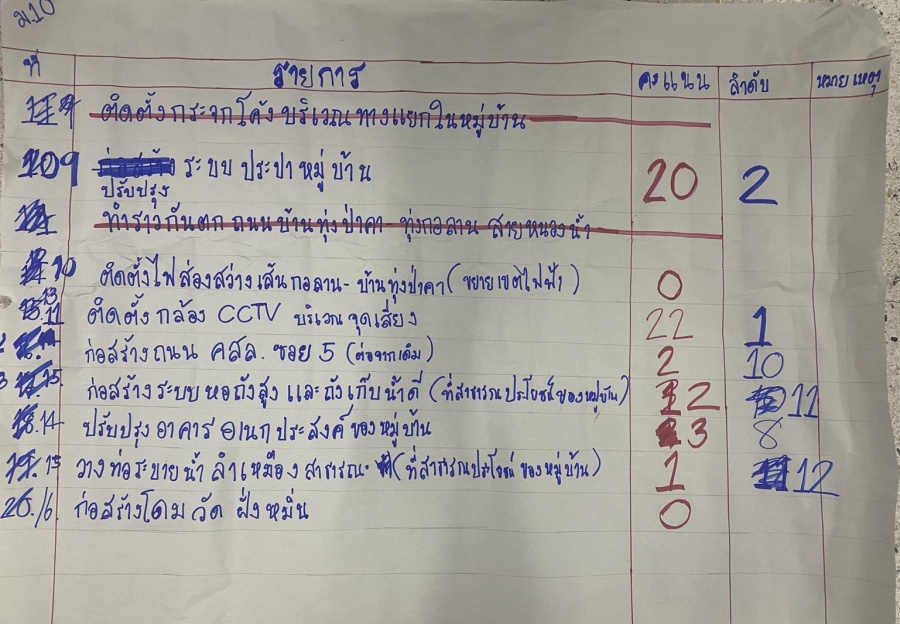 ม.10
ที่ รายการ คะแนน ลำดับ หมายเหตุ
ติดตั้งกระจกโค้งบริเวณทางแยกในหมู่บ้าน
9 ระบบประปาหมู่บ้าน 20 2
ปรับปรุง
ทำราวกันตก ถนนบ้านทุ่งป่าคา - ทุ่งกอลาน สายหนองน้ำ
10 ติดตั้งไฟส่องสว่างเส้นกอลาน - บ้านทุ่งป่าคา (ขยายเขตไฟฟ้า) 0
11 ติดตั้งกล้อง CCTV บริเวณจุดเสี่ยง 22 1
ก่อสร้างถนน คสล. ซอย 5 (ต่อจากเดิม) 2 10
ก่อสร้างระบบหอถังสูง และถังเก็บน้ำดี (ที่สาธารณประโยชน์ของหมู่บ้าน) 2 11
14 ปรับปรุงอาคารอเนกประสงค์ของหมู่บ้าน 3 8
15 วางท่อระบายน้ำ ลำเหมืองสาธารณะ (ที่สาธารณประโยชน์ของหมู่บ้าน) 1 12
16 ก่อสร้างโดมวัดฝั่งหมิ่น 0